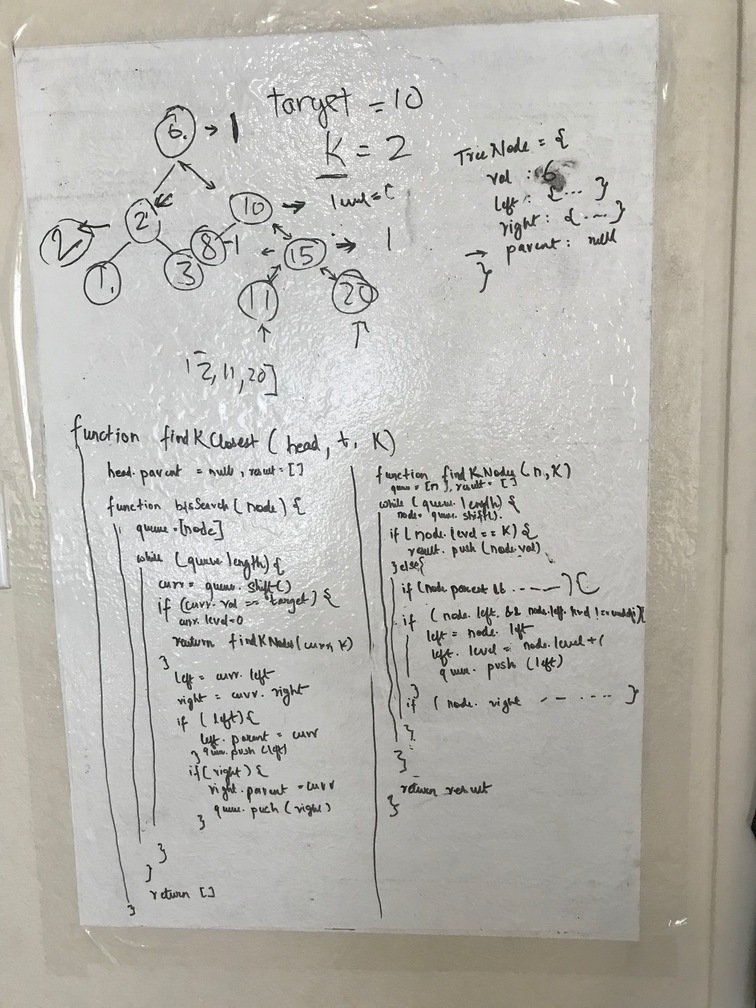 target = 10
K = 2
6. → 1
2
10 → level = 0
2
1.
3
8 -1
15 → 1
11
20
[2, 11, 20]
TreeNode = {
val : 6
left : { ... }
right : { ... }
→ parent : null
}
function findKClosest ( head, t, K)
head. parent = null, result = []
function bfsSearch ( node) {
queue = [node]
while (queue. length) {
curr = queue. shift()
if (curr. val == target) {
curr. level = 0
return findKNodes (curr, K)
}
left = curr. left
right = curr. right
if ( left) {
left. parent = curr
} queue. push (left)
if (right) {
right. parent = curr
queue. push (right)
}
}
}
return []
}
function findKNodes ( n, K)
queue = [n], result = []
while ( queue. length) {
node = queue. shift().
if ( node. level == K) {
result. push (node. val)
} else {
if (node. parent && . - - - ) {
if ( node. left. && node. left. level !==
left = node. left
left. level = node. level + 1
queue. push (left)
}
if ( node. right - - .... }
}
}
return result
}